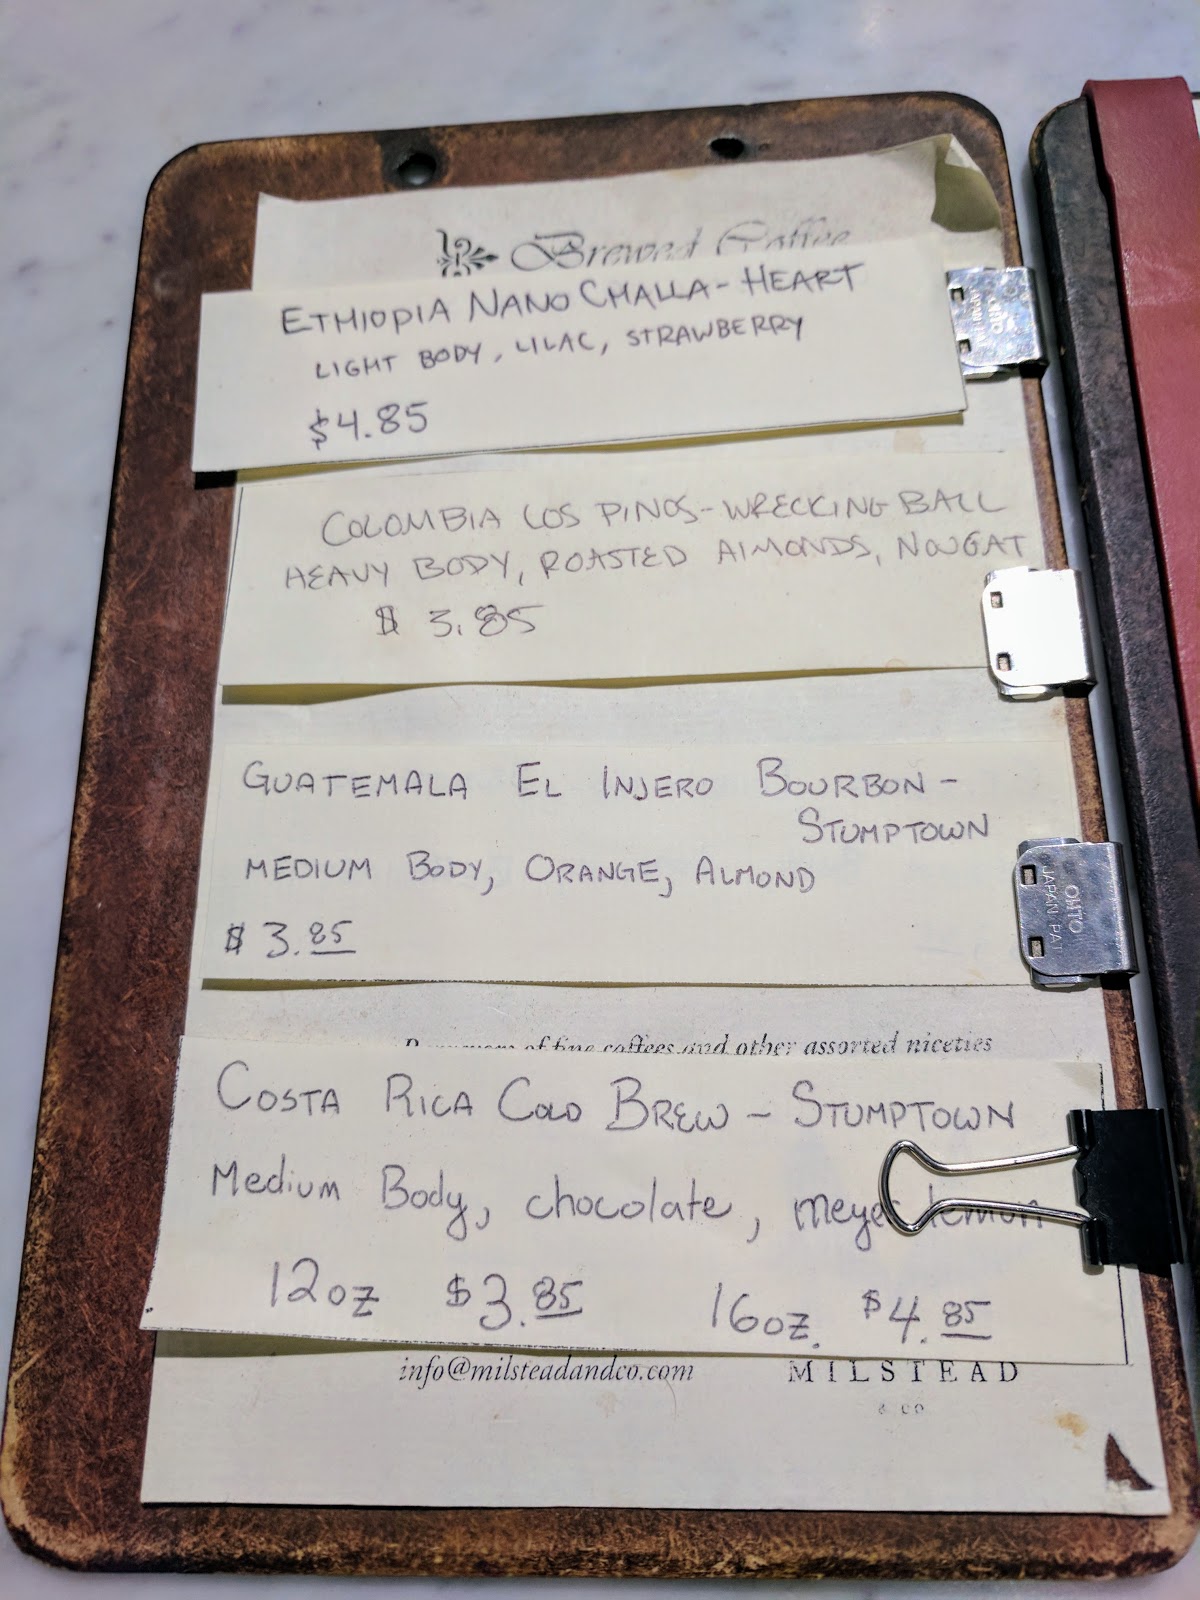 Brewed Coffee
ETHIOPIA NANO CHALLA - HEART
LIGHT BODY, LILAC, STRAWBERRY
$4.85
COLOMBIA LOS PINOS - WRECKING BALL
HEAVY BODY, ROASTED ALMONDS, NOUGAT
$ 3.85
GUATEMALA EL INJERO BOURBON -
STUMPTOWN
MEDIUM BODY, ORANGE, ALMOND
$ 3.85
of fine coffees and other assorted niceties
COSTA RICA COLD BREW - STUMPTOWN
Medium Body, chocolate, meyer lemon
12oz $3.85 16oz. $4.85
info@milsteadandco.com MILSTEAD
& CO
OHTO
JAPAN PAT
OHTO
JAPAN PAT